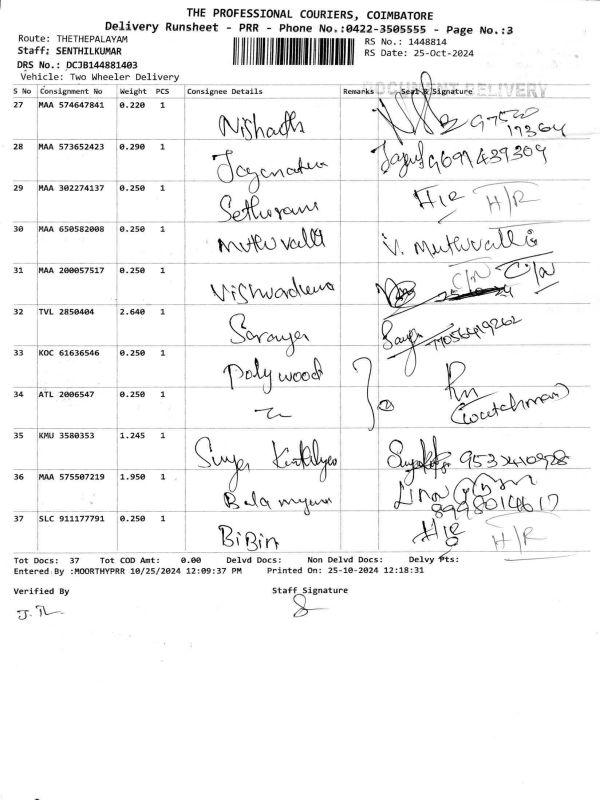 THE PROFESSIONAL COURIERS, COIMBATORE
Delivery Runsheet - PRR - Phone No.:0422-3505555 - Page No.:3
Route: THETHEPALAYAM
RS No.: 1448814
Staff: SENTHILKUMAR
RS Date: 25-Oct-2024
DRS No.: DCJB144881403
Vehicle: Two Wheeler Delivery
DOCUMENT DELIVERY
S No Consignment No Weight PCS Consignee Details Remarks Seal & Signature
27 MAA 574647841 0.220 1
Nishadh
28 MAA 573652423 0.290 1
29 MAA 302274137 0.250 1
H/R H/R
30 MAA 650582008 0.250 1
Muthuvalli V. Muthuvalli
31 MAA 200057517 0.250 1
C/N C/N
32 TVL 2850404 2.640 1
Saranya
33 KOC 61636546 0.250 1
Polywood
34 ATL 2006547 0.250 1
(watchman)
35 KMU 3580353 1.245 1
36 MAA 575507219 1.950 1
37 SLC 911177791 0.250 1
BiBin H/R H/R
Tot Docs: 37 Tot COD Amt: 0.00 Delvd Docs: Non Delvd Docs: Delvy Pts:
Entered By :MOORTHYPRR 10/25/2024 12:09:37 PM Printed On: 25-10-2024 12:18:31
Verified By Staff Signature